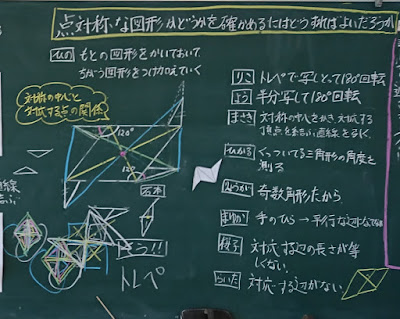 点対称な図形かどうかを確かめるにはどうすればよいだろうか
ひの もとの図形をかいておいて
ちがう図形をつけ加えていく
対称の中心と
対応する点の関係
120°
120°
りこ トレペで写しとって180°回転
よう 半分写して180°回転
まさき 対称の中心をかき、対応する
頂点をまっすぐ直線をひく。
ひかる くっついてる三角形の角度を
測る
奇数角形だから
まゆか 手のひら→平行な辺
対応する辺の長さが等
しくない
らいた 対応する辺がない
そう!!
トレペ
直線